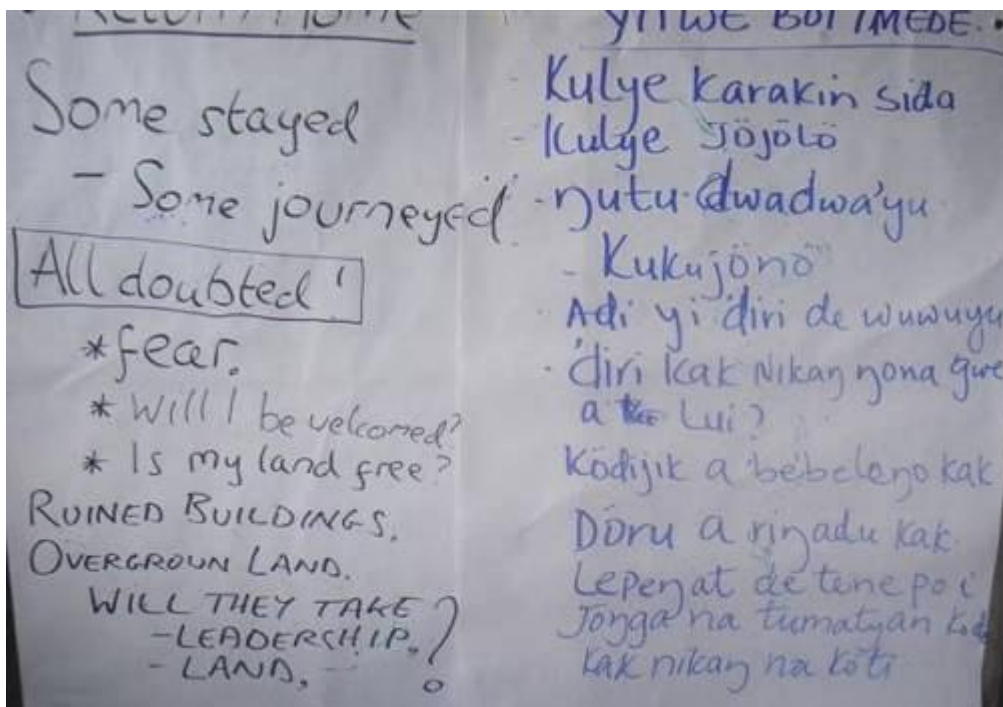 Return Home
Some stayed
- Some journeyed
All doubted!
*fear.
* Will I be velcomed?
* Is my land free?
RUINED BUILDINGS.
OVERGROUN LAND.
WILL THEY TAKE ?
-LEADERSHIP.
- LAND.
YIITWE BOT IMEDE.
- Kulye Karakin sida
- Kulye Jöjölö
- ŋutu dwadwa'yu
- Kukujönö
. Adi yi 'diri de wuwuyu
. 'diri kak Nikaŋ ŋona gwe
a Lui?
Ködijik a 'be'beleŋo kak
Döru a riŋadu kak
Lepeŋat de tene po i
Joŋga na tumatyan
kak nikaŋ na köti